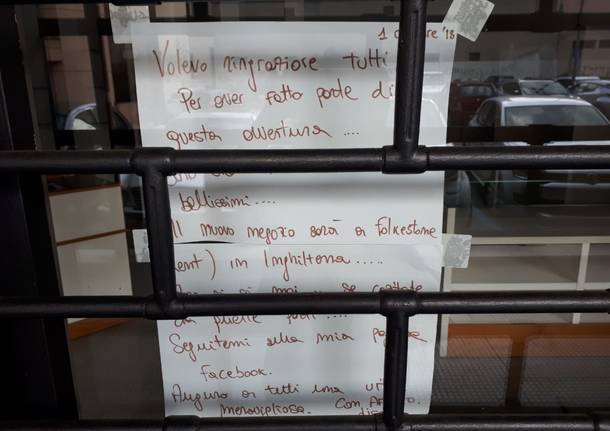 '18
Volevo ringraziare tutti
Per aver fatto parte di
questa avventura ....
bellissimi....
Il nuovo negozio sarà a Folkestone
ent) in Inghilterra.....
se
da quelle parti ....
Seguitemi alla mia
Facebook.
Auguro a tutti una
meravigliosa. Con